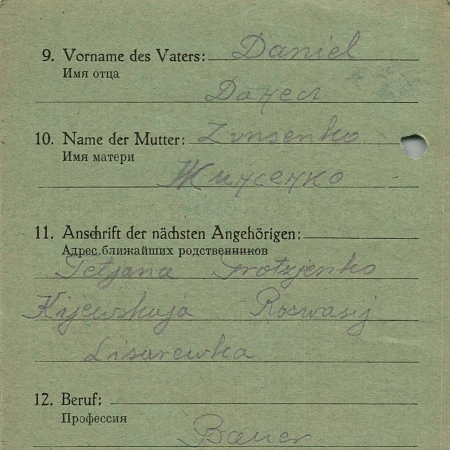 9. Vorname des Vaters: Daniel
Имя отца
Данел
10. Name der Mutter: Zinsenko
Имя матери
Жинсенко
11. Anschrift der nächsten Angehörigen:
Адрес ближайших родственников
Tetjana Trotzjenko
Kijewskaja Roswasij
Lisarewka
12. Beruf:
Профессия
Bauer